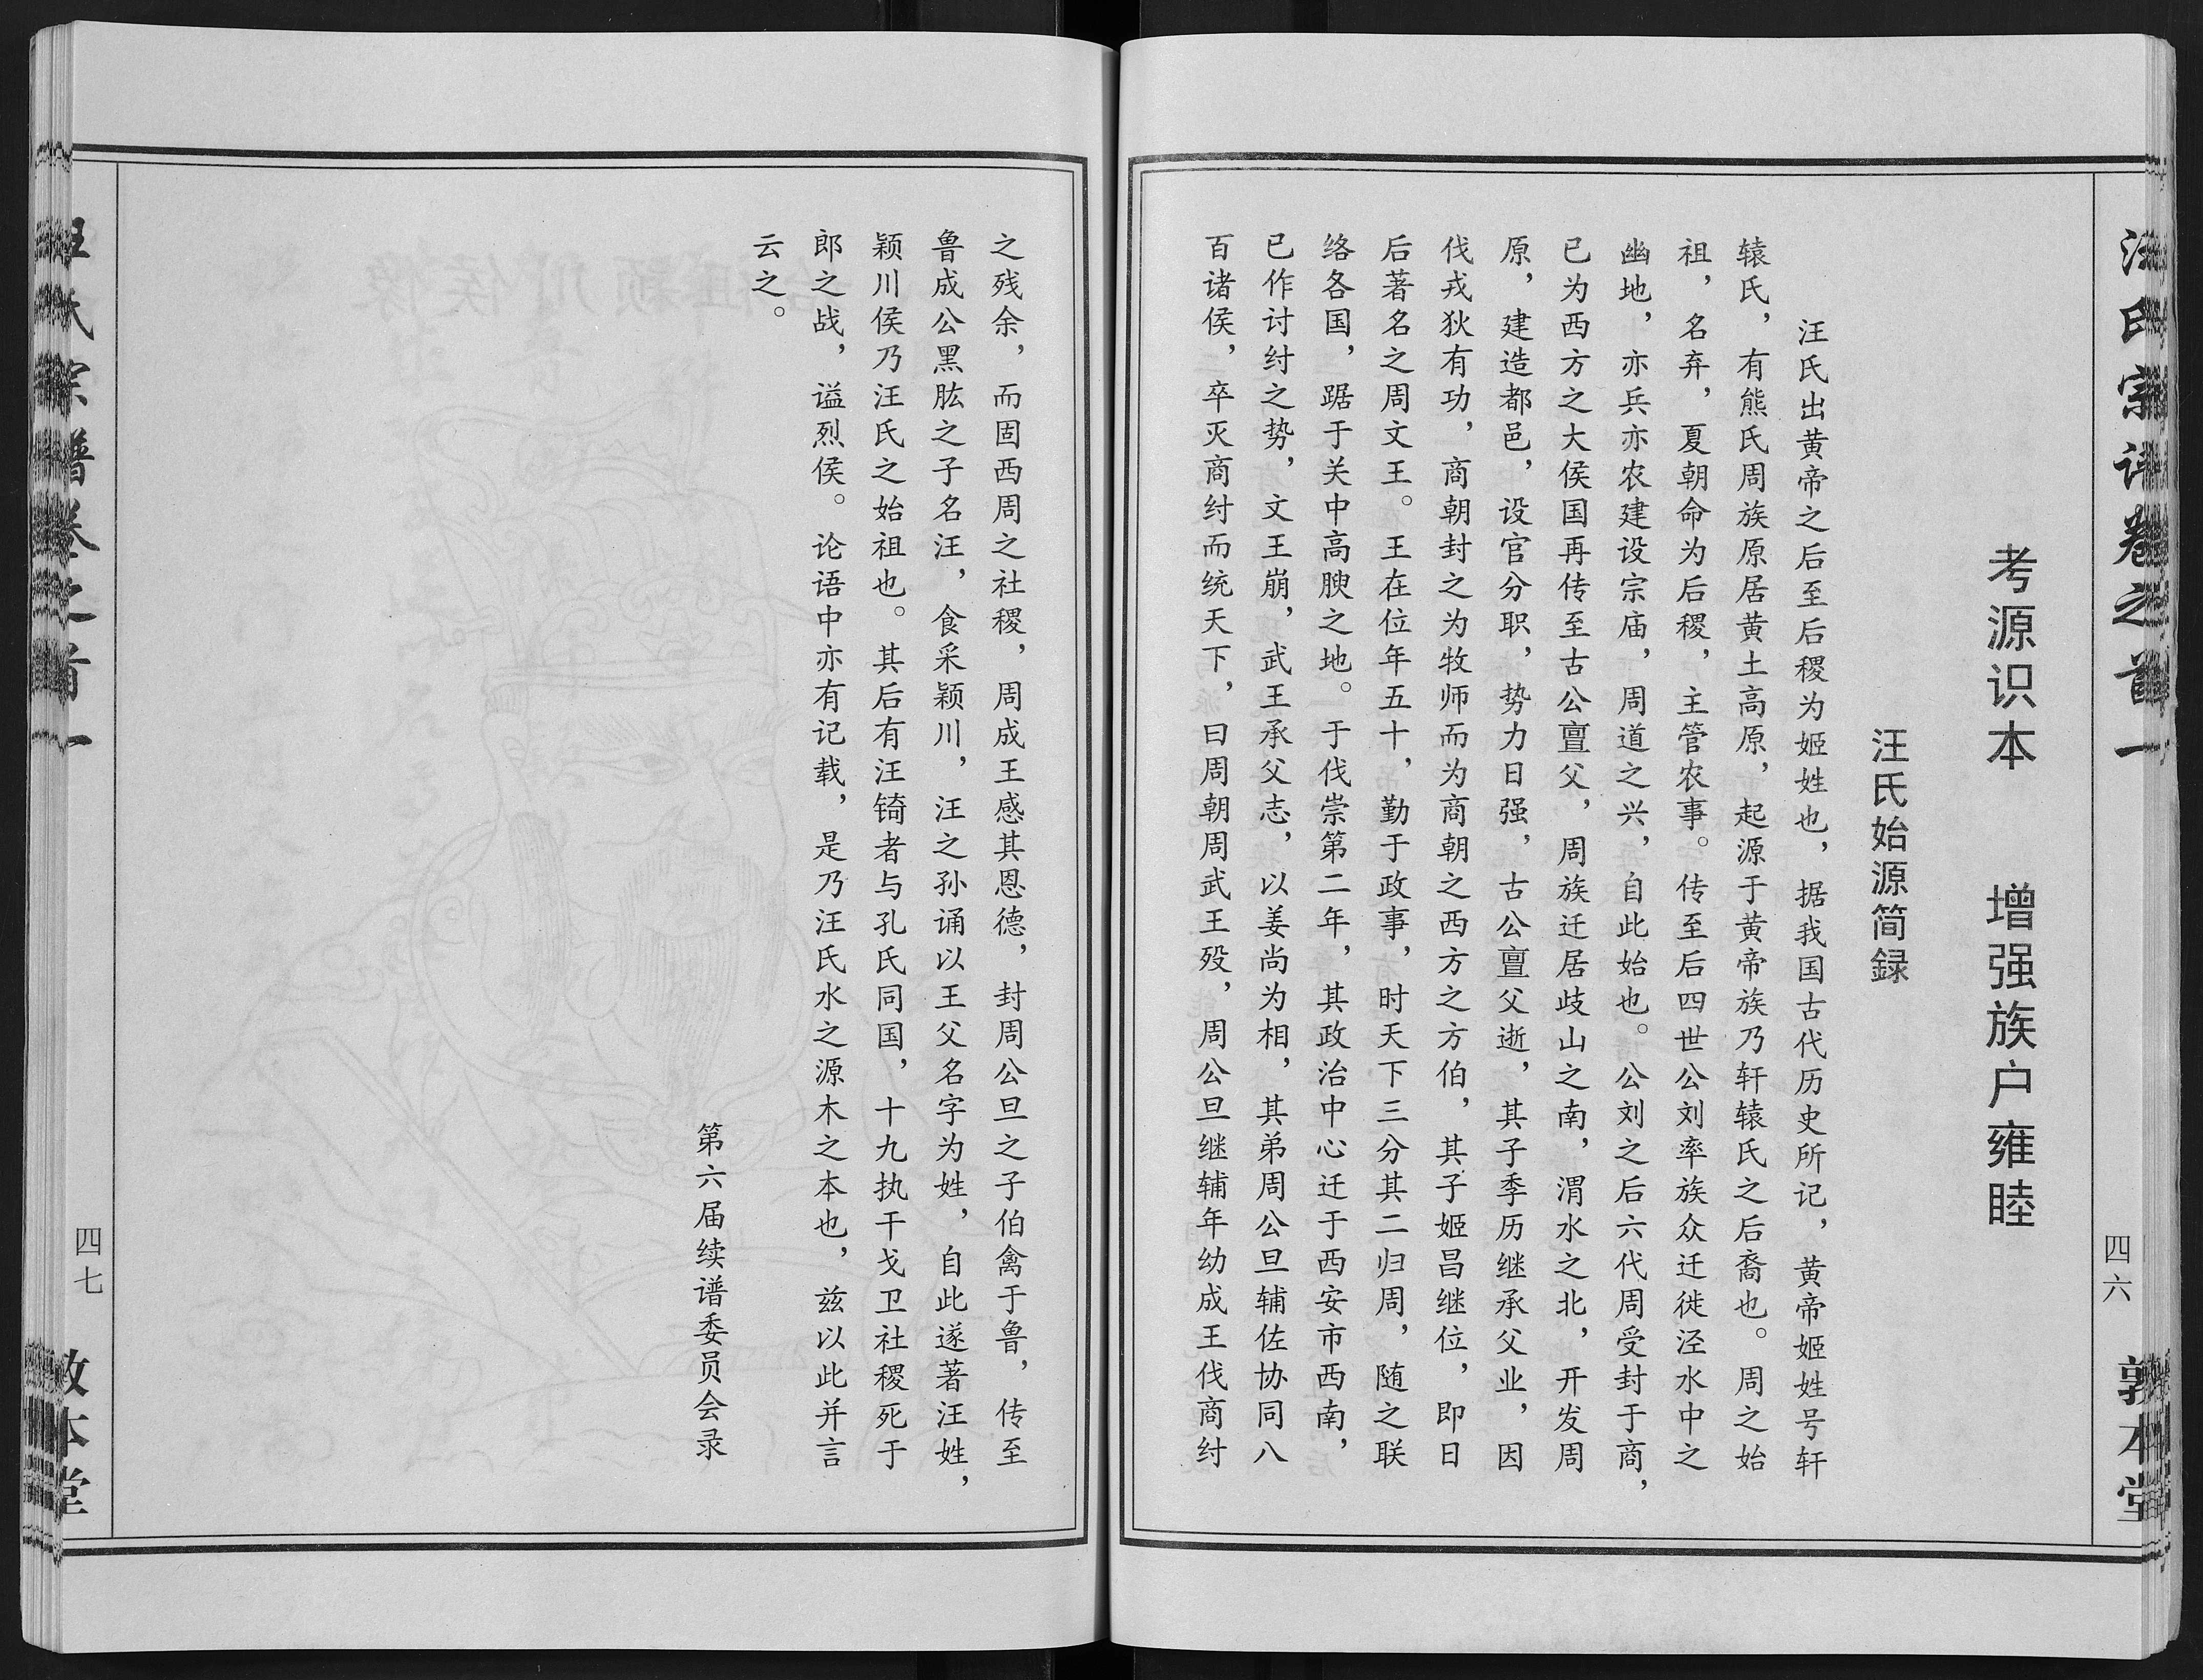 汪氏宗谱卷之首一
四六
敦本堂
考源识本 增强族户雍睦
汪氏始源简録
汪氏出黄帝之后至后稷为姬姓也，据我国古代历史所记，黄帝姬姓号轩
辕氏，有熊氏周族原居黄土高原，起源于黄帝族乃轩辕氏之后裔也。周之始
祖，名弃，夏朝命为后稷，主管农事。传至后四世公刘率族众迁徙泾水中之
豳地，亦兵亦农建设宗庙，周道之兴，自此始也。公刘之后六代周受封于商，
已为西方之大侯国再传至古公亶父，周族迁居歧山之南，渭水之北，开发周
原，建造都邑，设官分职，势力日强，古公亶父逝，其子季历继承父业，因
伐戎狄有功，商朝封之为牧师而为商朝之西方之方伯，其子姬昌继位，即日
后著名之周文王。王在位年五十，勤于政事，时天下三分其二归周，随之联
络各国，踞于关中高腴之地。于伐崇第二年，其政治中心迁于西安市西南，
已作讨纣之势，文王崩，武王承父志，以姜尚为相，其弟周公旦辅佐协同八
百诸侯，卒灭商纣而统天下，曰周朝周武王殁，周公旦继辅年幼成王伐商纣
之残余，而固西周之社稷，周成王感其恩德，封周公旦之子伯禽于鲁，传至
鲁成公黑肱之子名汪，食采颖川，汪之孙诵以王父名字为姓，自此遂著汪姓，
颖川侯乃汪氏之始祖也。其后有汪锜者与孔氏同国，十九执干戈卫社稷死于
郎之战，谥烈侯。论语中亦有记载，是乃汪氏水之源木之本也，兹以此并言
云之。
第六届续谱委员会录
汪氏宗谱卷之首一
四七
敦本堂